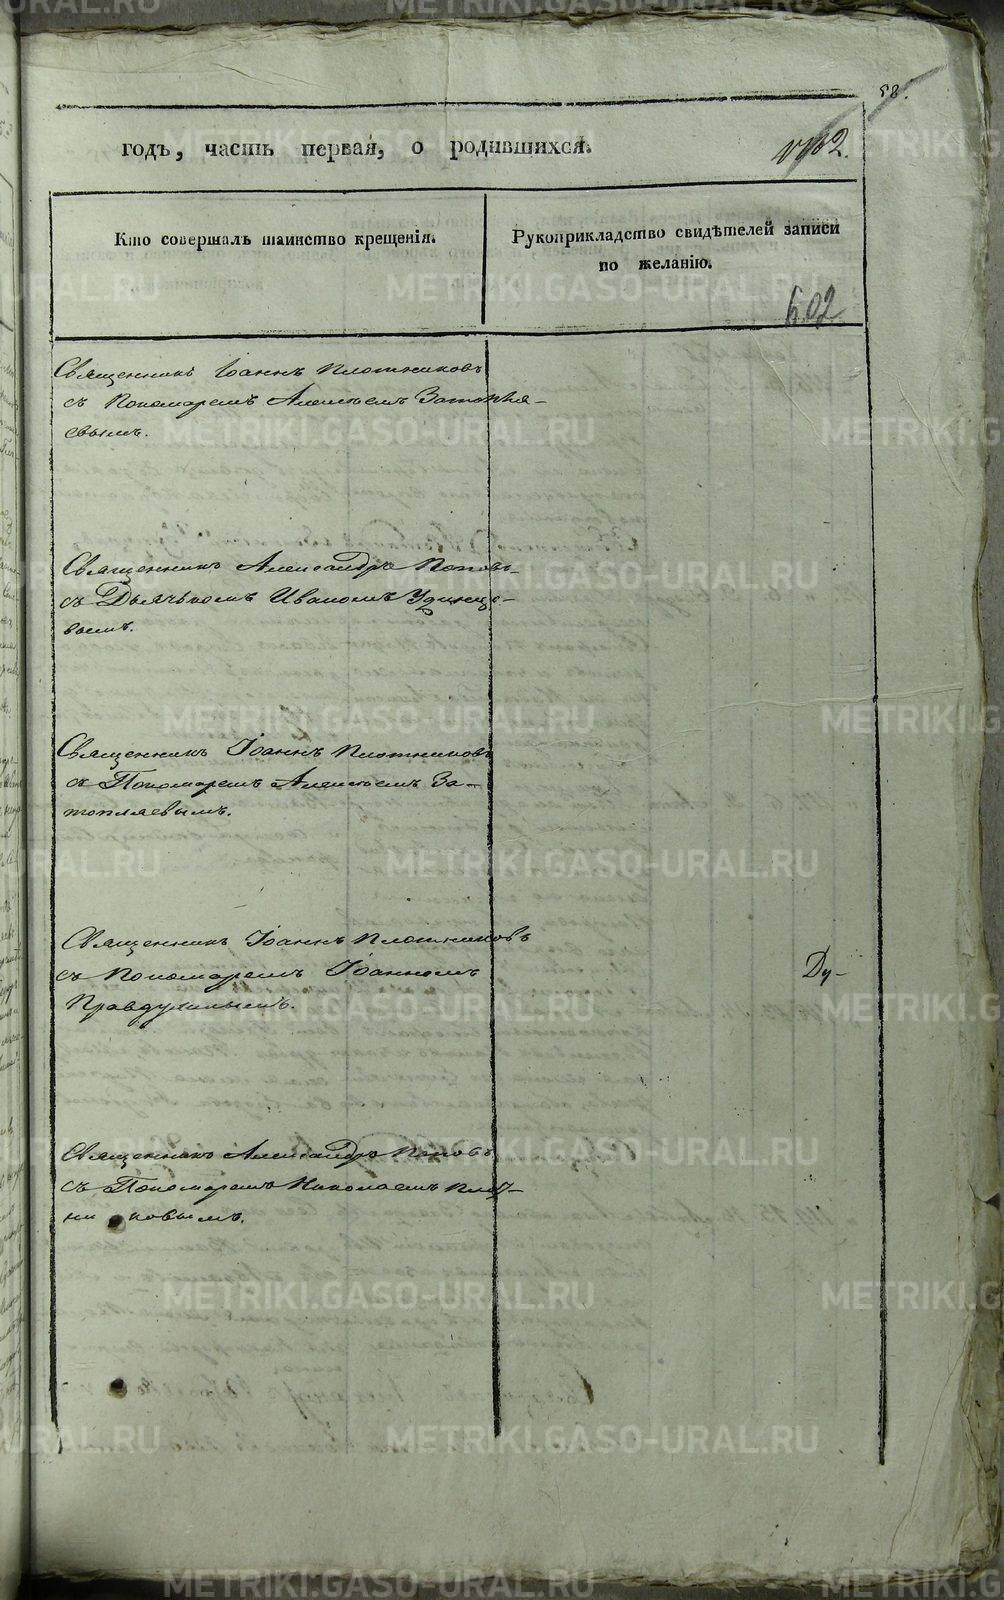 58.
годъ, часть первая, о родившихся.
Кто совершалъ таинство крещенія.
Рукоприкладство свидѣтелей записи
по желанію.
602
Священникъ Іоаннъ Плотниковъ
съ Пономаремъ Алексѣемъ Затопля-
евымъ.
Священникъ Александръ Поповъ
съ Дьячькомъ Иваномъ Удинце-
вымъ.
Священникъ Іоаннъ Плотниковъ
съ Пономаремъ Алексѣемъ За-
топляевымъ.
Священникъ Іоаннъ Плотниковъ
съ Пономаремъ Іоанномъ
Правдухинымъ.
Ду-
Священникъ Александръ Поповъ
съ Пономаремъ Николаемъ Плот-
никовымъ.
METRIKI.GASO-URAL.RU